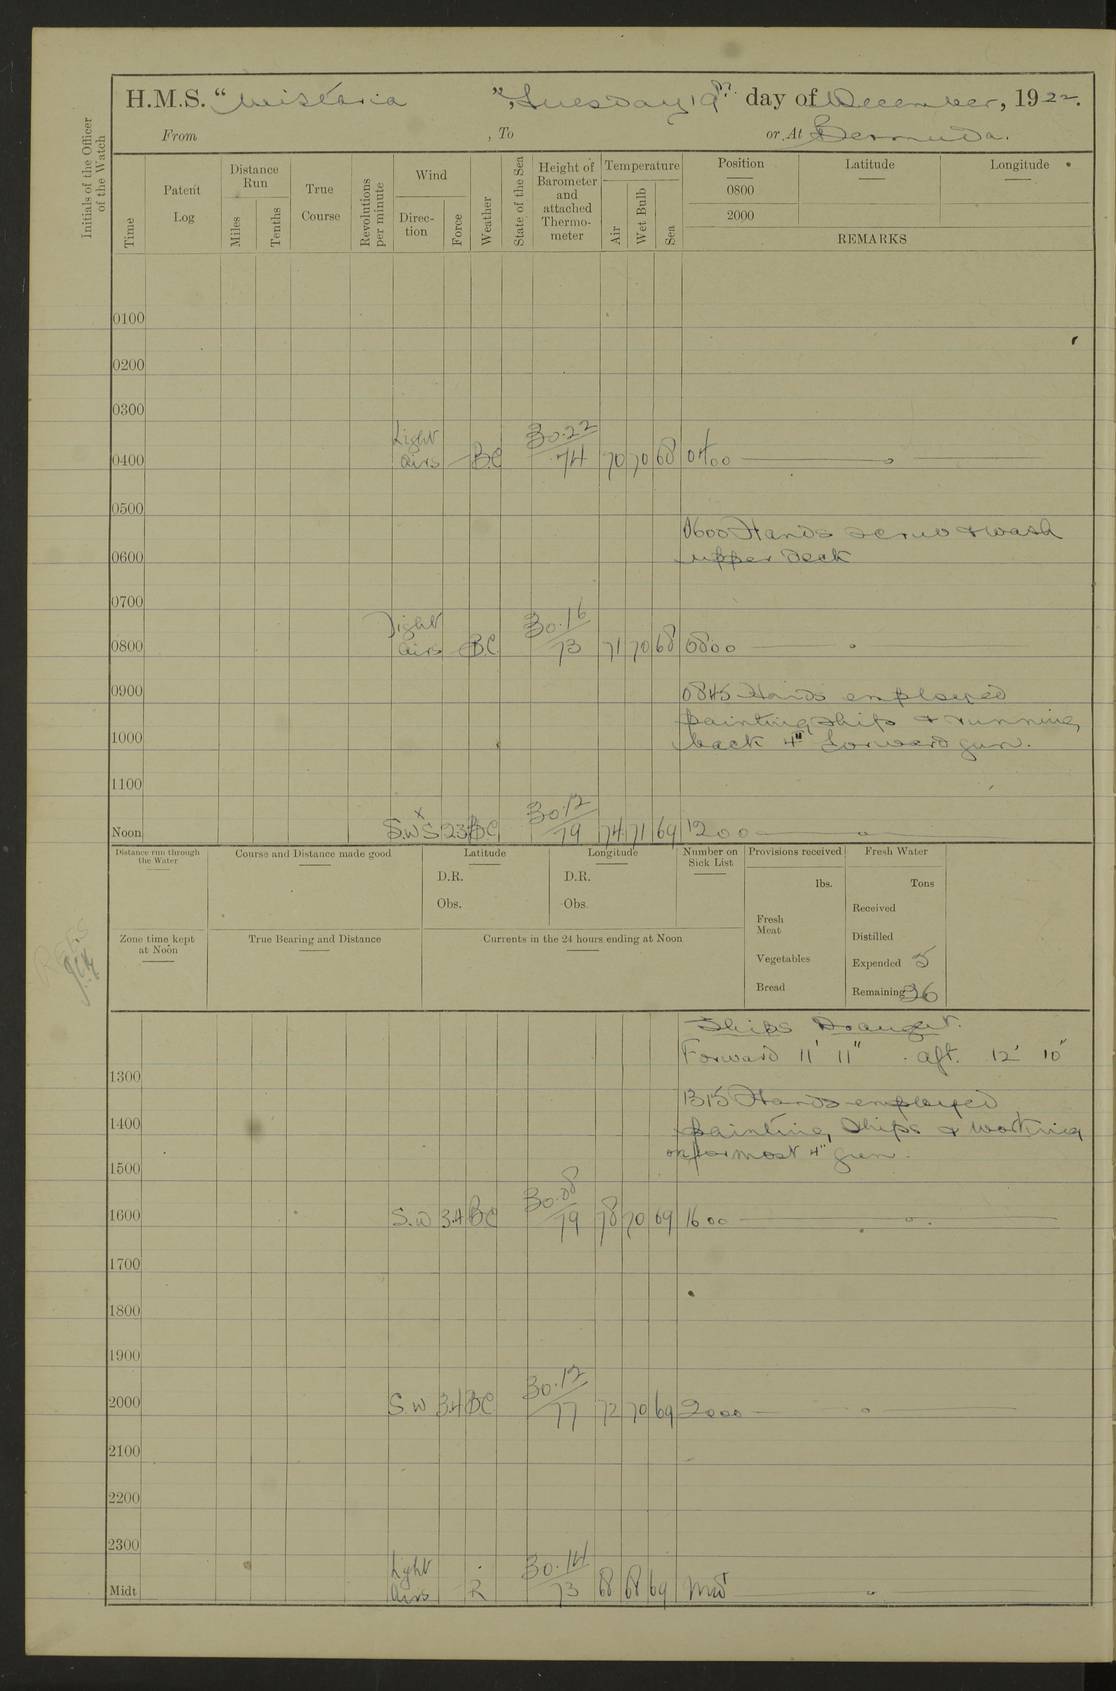 H.M.S. “Wistaria”, Tuesday 19th day of December, 1922.
From , To or At Bermuda.
Initials of the Officer of the Watch
Time
Patent Log
Distance Run
Miles
Tenths
True Course
Revolutions per minute
Wind
Direction
Force
Weather
State of the Sea
Height of Barometer and attached Thermometer
Temperature
Air
Wet Bulb
Sea
Position Latitude Longitude
0800
2000
REMARKS
0100
0200
0300
0400 Light airs — BC 30.22/74 70 70 68 0400
0500
0600 Hands scrub & wash
0600 upper deck
0700
0800 Light airs — BC 30.16/73 71 70 68 0800
0900 0845 Hands employed
painting ship & running
1000 back 4" forward gun.
1100
Noon S.W x S 23 BC 30.12/79 74 71 69 1200
Distance run through the Water
Course and Distance made good
Latitude
D.R.
Obs.
Longitude
D.R.
Obs.
Number on Sick List
Provisions received
lbs.
Fresh Meat
Vegetables
Bread
Fresh Water
Tons
Received
Distilled
Expended 5
Remaining 96
Zone time kept at Noon
True Bearing and Distance
Currents in the 24 hours ending at Noon
Ships Draught.
Forward 11' 11" . aft. 12' 10"
1300
1315 Hands employed
1400 painting ships & working
on formost 4" gun.
1500
1600 S.W 34 BC 30.08/79 78 70 69 1600
1700
1800
1900
2000 S.W 34 BC 30.12/77 72 70 69 2000
2100
2200
2300
Midt Light airs R 30.14/73 68 68 69 Mid